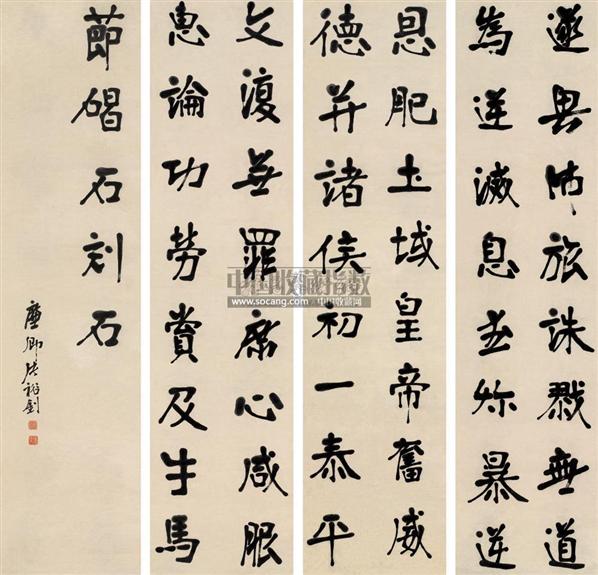 遂興師旅誅戮無道
為逆滅息武殄暴逆
恩肥土域皇帝奮威
德并諸侯初一泰平
文復無罪庶心咸服
惠論功勞賞及牛馬
節碣石刻石
廉卿張裕釗
中国收藏指数
www.socang.com 中国收藏网